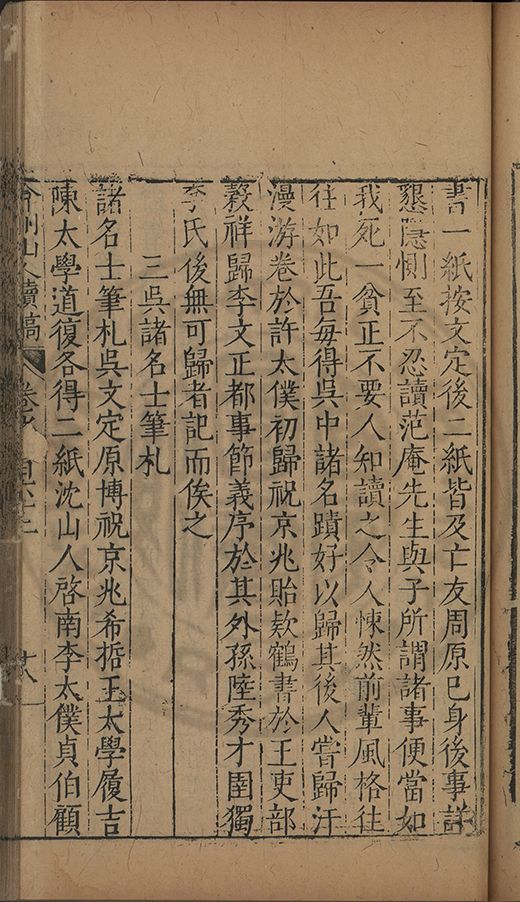 書一紙按文定後二紙皆及亡友周原巳身後事詳
懇隱惻至不忍讀范庵先生與子所謂諸事便當如
我死一貧正不要人知讀之令人悚然前輩風格往
往如此吾每得吳中諸名蹟好以歸其後人嘗歸汗
漫游卷於許太僕初歸祝京兆貽欵鶴書於王吏部
穀祥歸李文正都事節義序於其外孫陸秀才圉獨
李氏後無可歸者記而俟之
三吳諸名士筆札
諸名士筆札吳文定原博祝京兆希哲王太學履吉
陳太學道復各得二紙沈山人啓南李太僕貞伯顧
弇州山人續稿 卷之一百六十三 廿八